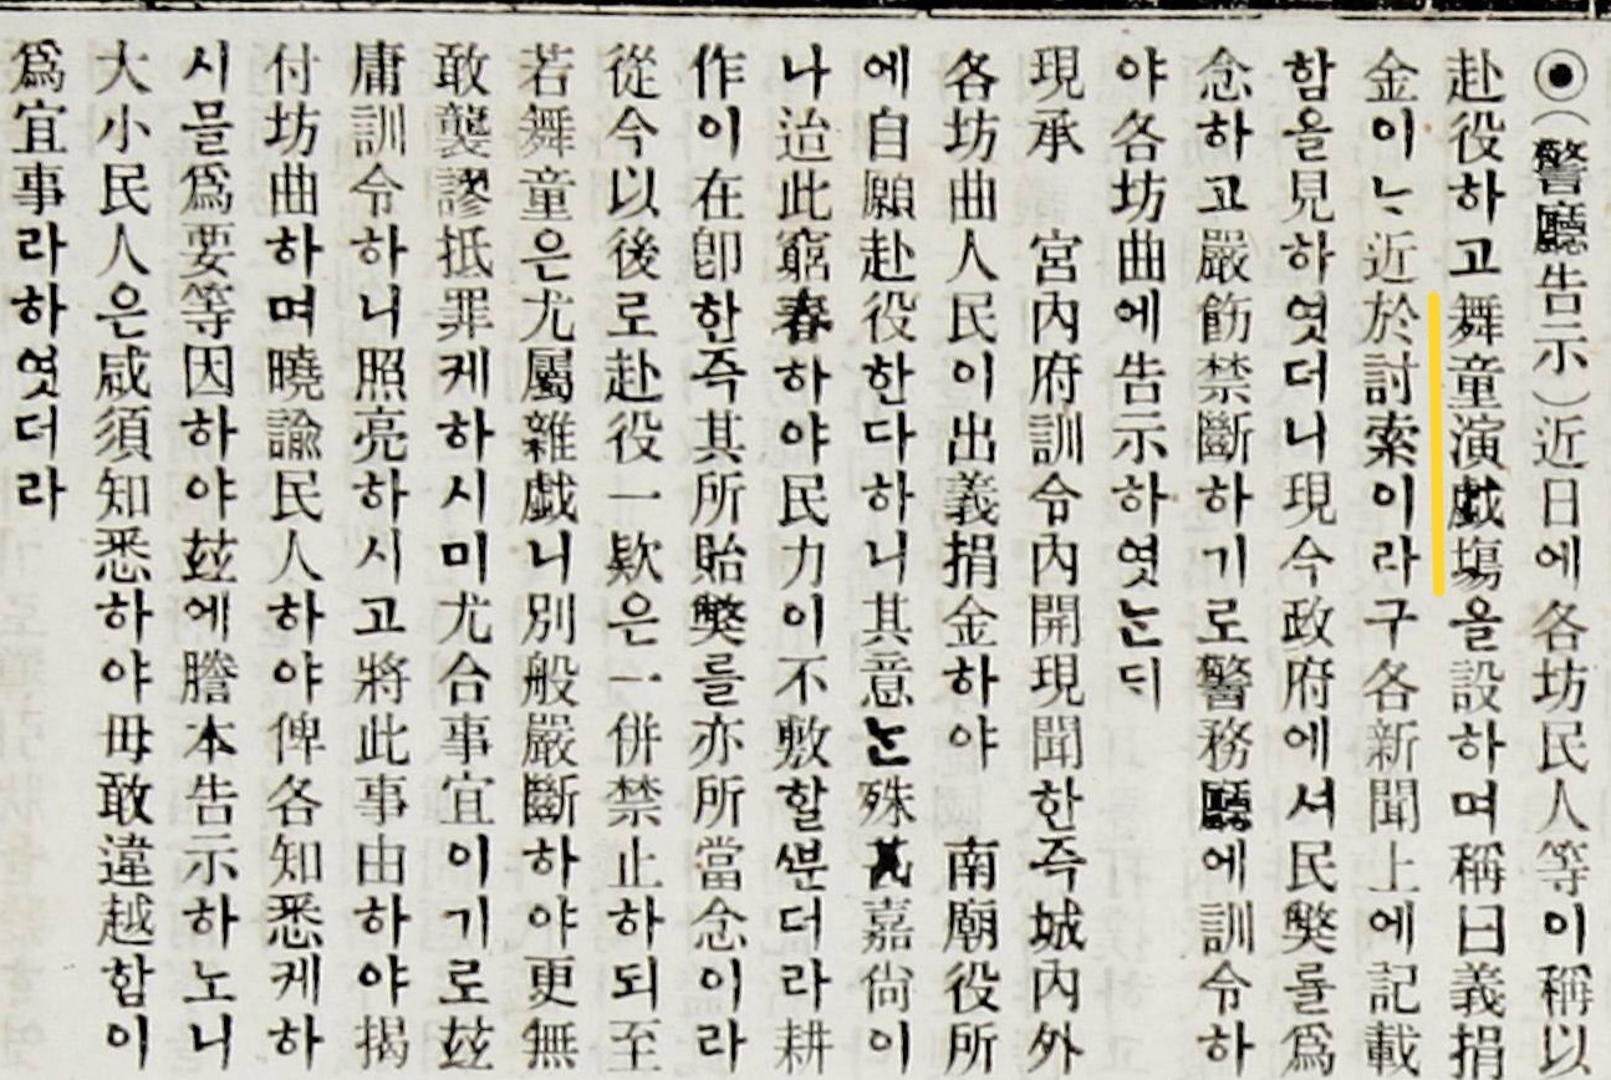 ◉(警廳告示)近日에各坊民人等이稱以
赴役하고舞童演戱場을設하며稱曰義捐
金이ᄂᆞᆫ近於討索이라구各新聞上에記載
함을見하엿더니現今政府에셔民獘를爲
念하고嚴飭禁斷하기로警務廳에訓令하
야各坊曲에告示하엿눈ᄃᆡ
現承 宮內府訓令內開現聞한즉城內外
各坊曲人民이出義捐金하야 南廟役所
에自願赴役한다하니其意눈殊甚嘉尙이
나迨此窮春하야民力이不敷할ᄲᅮᆫ더라耕
作이在卽한즉其所貽獘를亦所當念이라
從今以後로赴役一欵은一併禁止하되至
若舞童은尤屬雜戱니別般嚴斷하야更無
敢襲謬抵罪케하시미尤合事宜이기로玆
庸訓令하니照亮하시고將此事由하야揭
付坊曲하며曉諭民人하야俾各知悉케하
시믈爲要等因하야玆에謄本告示하노니
大小民人은咸須知悉하야毋敢違越함이
爲宜事라하엿더라